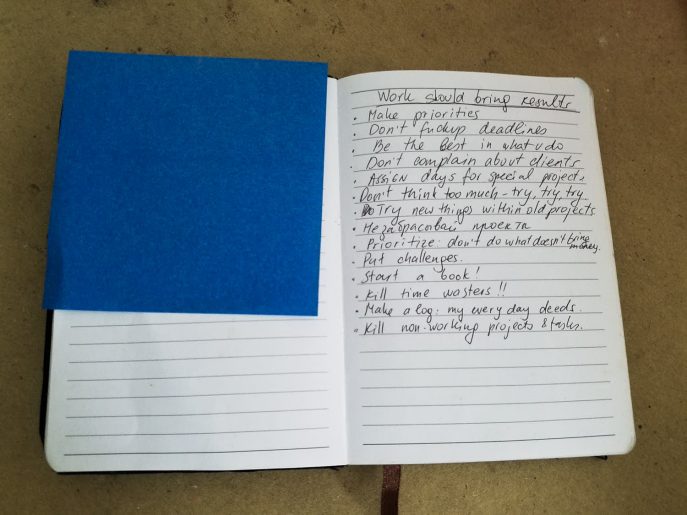 Work should bring results
• Make priorities
• Don't fuckup deadlines
• Be the best in what u do
• Don't complain about clients
• Assign days for special projects
• Don't think too much - try, try, try
• Try new things within old projects
• проекта
• Prioritize: don't do what doesn't bring money.
• Put challenges.
• Start a book!
• Kill time wasters!!
• Make a log: my every day deeds.
• Kill non-working projects & tasks.